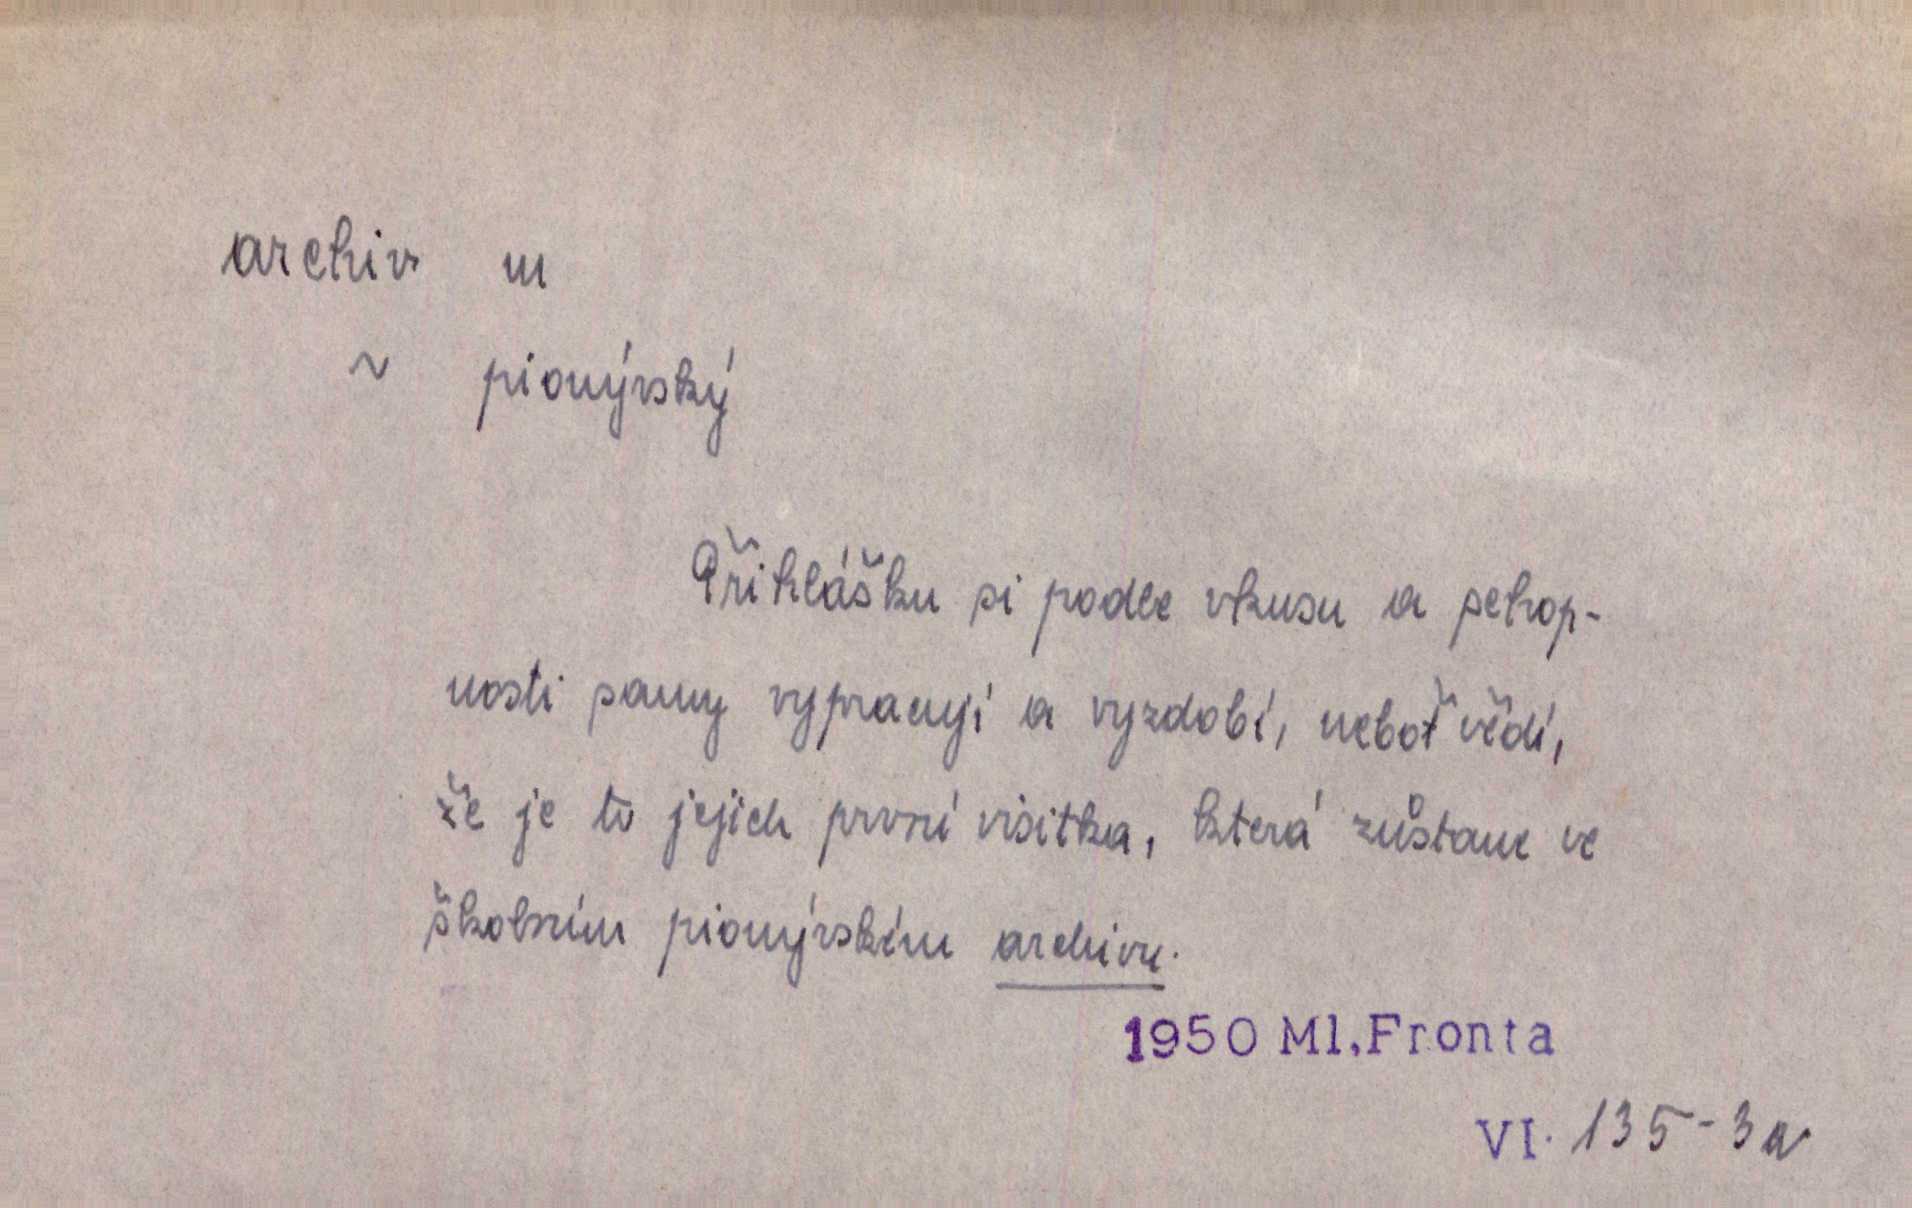 archiv m
~ pionýrský
Přihlášku si podle vkusu a schop-
nosti samy vypracují a vyzdobí, neboť vědí,
že je to jejich první visitka, která zůstane ve
školním pionýrském archivu.
1950 Ml.Fronta
VI. 135-3a